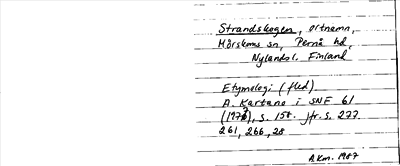 Strandskogen, ortnamn,
Mörskoms sn, Pernå hd,
Nylands l. Finland
Etymologi (fled).
A. Kartano i SNF 61
(1973), s. 158. Jfr. s. 277.
261, 266, 28
A.Km. 1987